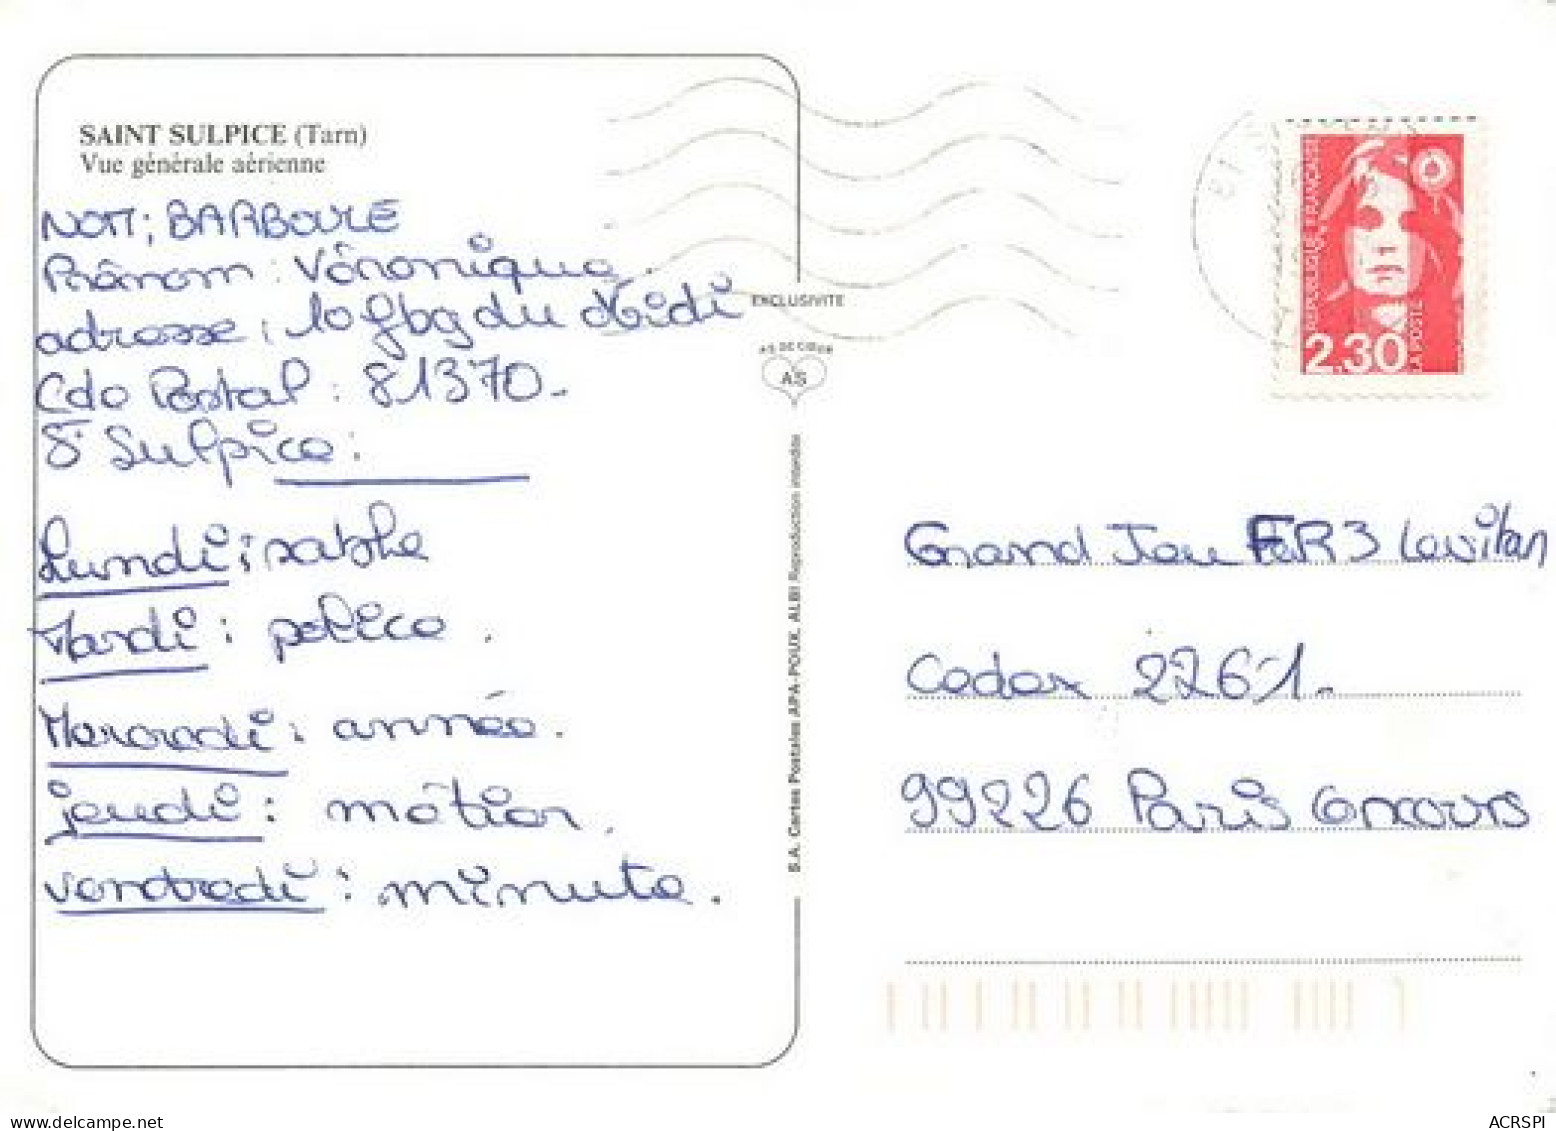 SAINT SULPICE (Tarn)
Vue générale aérienne
NOM; BARBOULE
Prénom : Véronique
adresse : 10 fbg du Midi
Cde Postal : 81370.
St Sulpice :
Lundi : sable
Mardi : police.
Mercredi : année.
jeudi : métier.
vendredi : minute.
EXCLUSIVITE
AS DE CŒUR
AS
S.A. Cartes Postales APA-POUX, ALBI Reproduction interdite
REPUBLIQUE FRANÇAISE
2,30
LA POSTE
81
Grand Jeu FR3 Levitan
Cedex 2261.
99226 Paris Concours
delcampe.net
ACRSPI